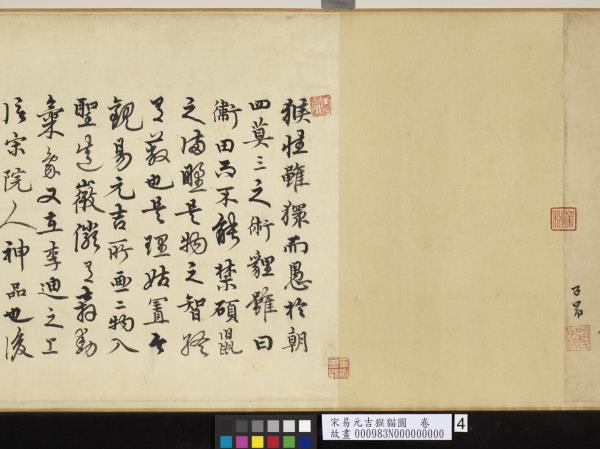 子昂
猴性雖獧而愚於朝
四莫三之術貍雖曰
衛田而不能禁碩鼠
之滿野是物之智終
有蔽也是理姑置吾
觀易元吉所画二物入
聖造微儼有奔動
氣象又在李迪之上
信宋院人神品也後
宋易元吉猴貓圖 卷
故畫 000983N000000000
4